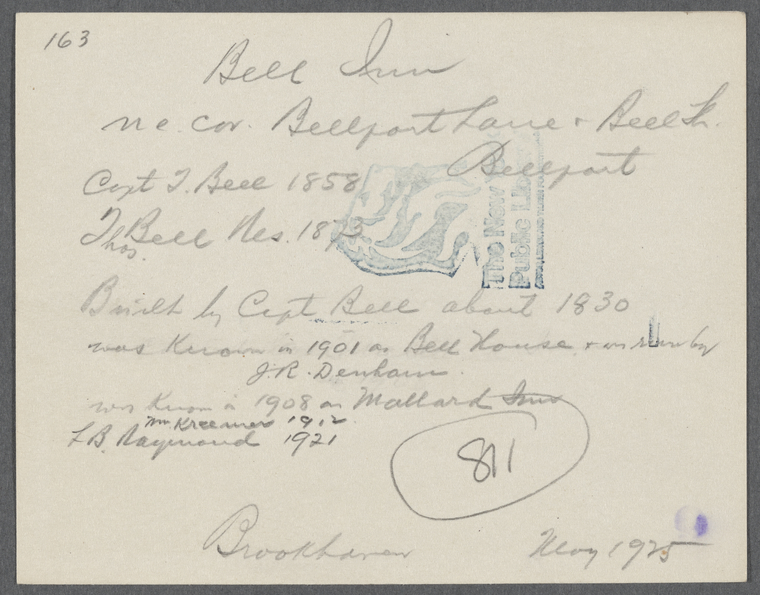 163
Bell Inn
n e. cor. Bellport Lane + Bell St.
Bellport
Capt T. Bell 1858
Thos. Bell Res. 1873
The New
Public Li
Built by Capt Bell about 1830
was known in 1901 as Bell House + was run by
J. R. Denham
was known in 1908 as Mallard Inn
Wm Kreamer 1912
L B. Raymond 1921
811
Brookhaven May 1925